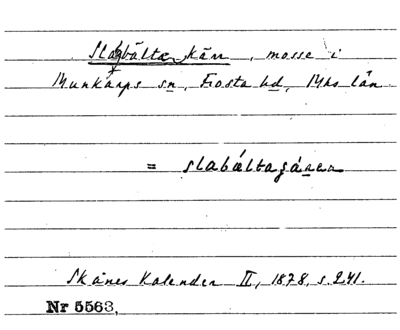 Slagbälta kärr, mosse i
Munkarps sn, Frosta hd, Mhs län
= slabálta
Skånes Kalender II, 1878, s. 241.
Nr 5563,